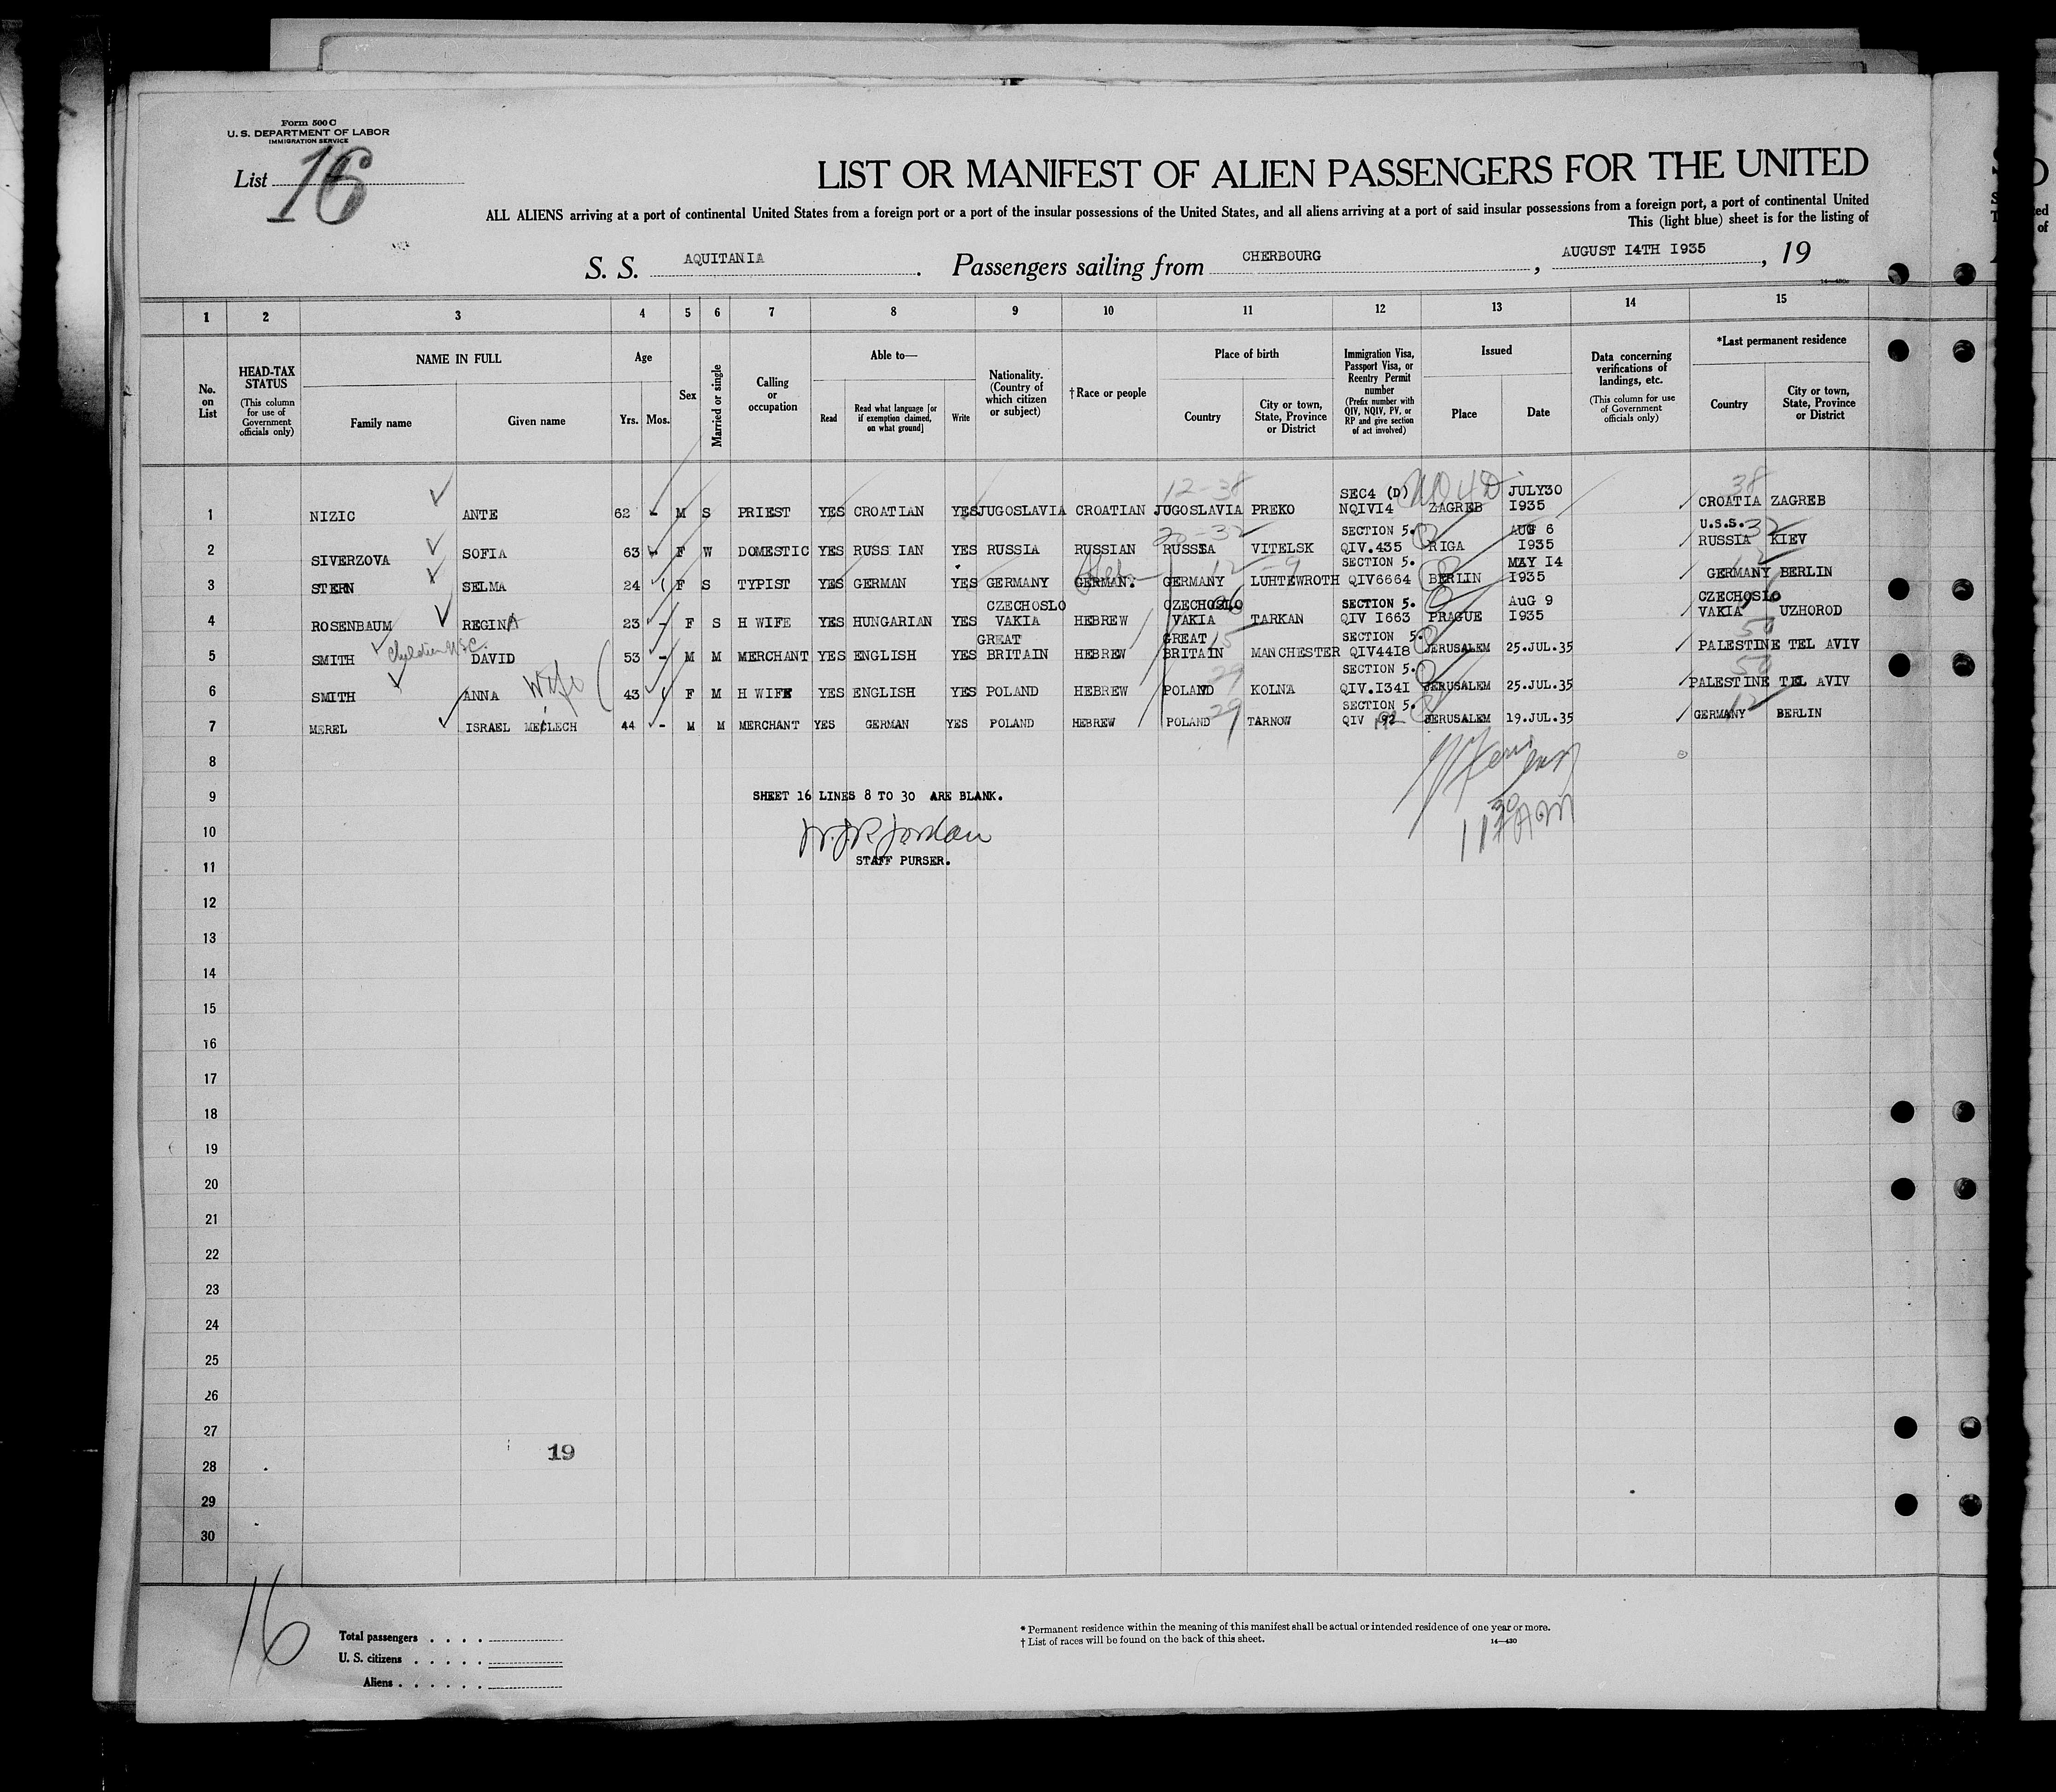 Form 500 C
U. S. DEPARTMENT OF LABOR
IMMIGRATION SERVICE
List 16
LIST OR MANIFEST OF ALIEN PASSENGERS FOR THE UNITED
ALL ALIENS arriving at a port of continental United States from a foreign port or a port of the insular possessions of the United States, and all aliens arriving at a port of said insular possessions from a foreign port, a port of continental United
This (light blue) sheet is for the listing of
S. S. AQUITANIA. Passengers sailing from CHERBOURG, AUGUST I4TH I935, 19
14—430c
1 2 3 4 5 6 7 8 9 10 11 12 13 14 15
No. on List
HEAD-TAX STATUS (This column for use of Government officials only)
NAME IN FULL Family name Given name
Age Yrs. Mos.
Sex
Married or single
Calling or occupation
Able to— Read Read what language [or if exemption claimed, on what ground] Write
Nationality. (Country of which citizen or subject)
†Race or people
Place of birth Country City or town, State, Province or District
Immigration Visa, Passport Visa, or Reentry Permit number (Prefix number with QIV, NQIV, PV, or RP and give section of act involved)
Issued Place Date
Data concerning verifications of landings, etc. (This column for use of Government officials only)
*Last permanent residence Country City or town, State, Province or District
12-38 NQ 4D 38
1 NIZIC ANTE 62 - M S PRIEST YES CROATIAN YES JUGOSLAVIA CROATIAN JUGOSLAVIA PREKO SEC4 (D) NQIVI4 ZAGREB JULY30 I935 CROATIA ZAGREB
2 SIVERZOVA SOFIA 63 - F W DOMESTIC YES RUSSIAN YES RUSSIA RUSSIAN RUSSIA VITELSK SECTION 5. QIV.435 RIGA AUG 6 I935 U.S.S. RUSSIA KIEV
3 STERN SELMA 24 F S TYPIST YES GERMAN YES GERMANY GERMAN. Heb. GERMANY LUHTEWROTH SECTION 5. QIV6664 BERLIN MAY I4 I935 GERMANY BERLIN
4 ROSENBAUM REGINA 23 - F S H WIFE YES HUNGARIAN YES CZECHOSLO VAKIA HEBREW CZECHOSLO VAKIA TARKAN SECTION 5. QIV I663 PRAGUE AuG 9 I935 CZECHOSLO VAKIA UZHOROD
5 SMITH Children USC. DAVID 53 - M M MERCHANT YES ENGLISH YES GREAT BRITAIN HEBREW GREAT BRITAIN MANCHESTER SECTION 5. QIV44I8 JERUSALEM 25.JUL.35 PALESTINE TEL AVIV
6 SMITH ANNA Wife 43 F M H WIFE YES ENGLISH YES POLAND HEBREW POLAND KOLNA SECTION 5. QIV.I34I JERUSALEM 25.JUL.35 PALESTINE TEL AVIV
7 MEREL ISRAEL MEILECH 44 - M M MERCHANT YES GERMAN YES POLAND HEBREW POLAND TARNOW SECTION 5. QIV 192 JERUSALEM 19.JUL.35 GERMANY BERLIN
8
9 SHEET 16 LINES 8 TO 30 ARE BLANK.
10
11 STAFF PURSER.
12
13
14
15
16
17
18
19
20
21
22
23
24
25
26
27
19
28
29
30
16
Total passengers
U. S. citizens
Aliens
* Permanent residence within the meaning of this manifest shall be actual or intended residence of one year or more.
† List of races will be found on the back of this sheet.
14—430